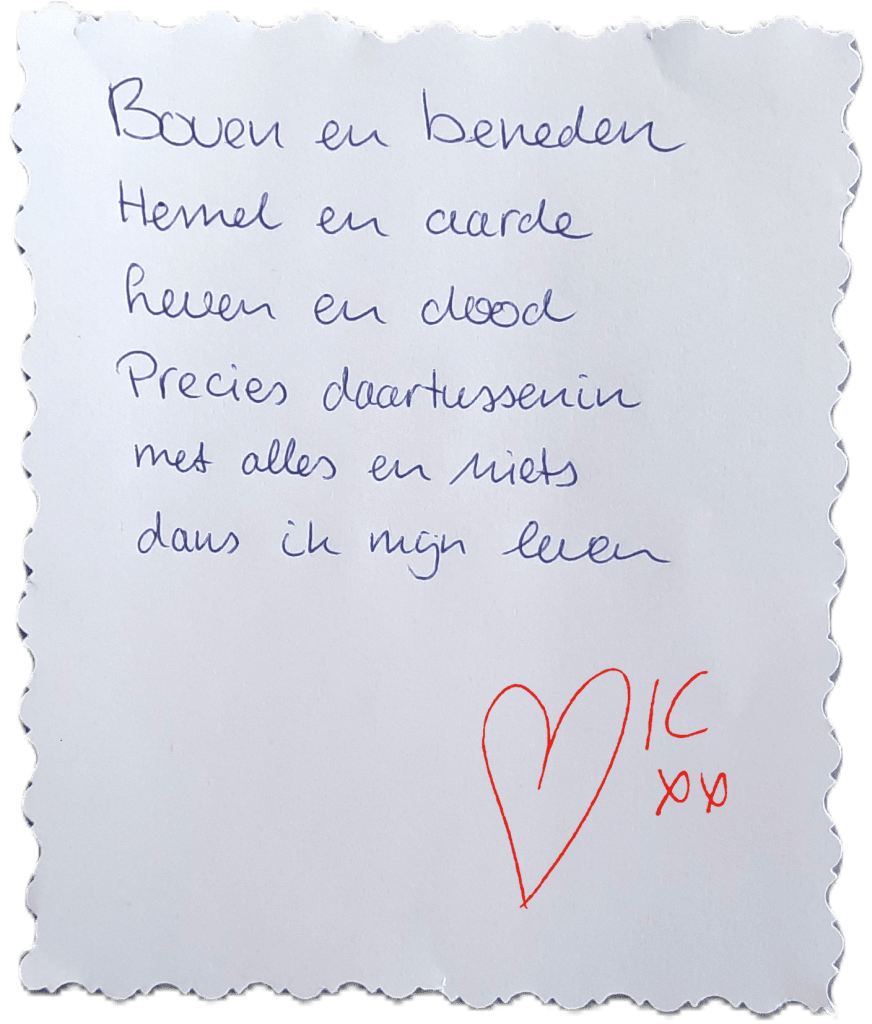 Boven en beneden
Hemel en aarde
Leven en dood
Precies daartussenin
met alles en niets
dans ik mijn leven
IC
xx